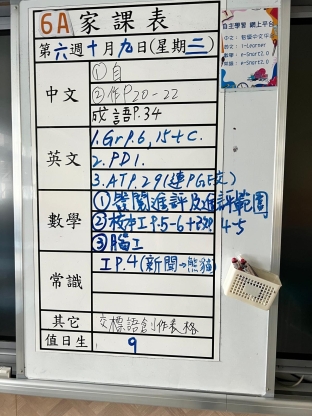 6A 家課表
第六週十月九日(星期三)
中文
①自
②作P.20-22
成語P.34
英文
1. Gr P.6, 15+C.
2. PD1.
3. ATP.29(連PGE交)
數學
①簽閱進評及進評範圍
②校本工P.5-6+
4-5
③腦工
常識
工P.4(新聞→熊貓)
其它
交標語創作表格
值日生
9
自主學習 網上平台
中文:
英文: i-Learner
數學: e-Smart2.0
常識: e-Smart2.0